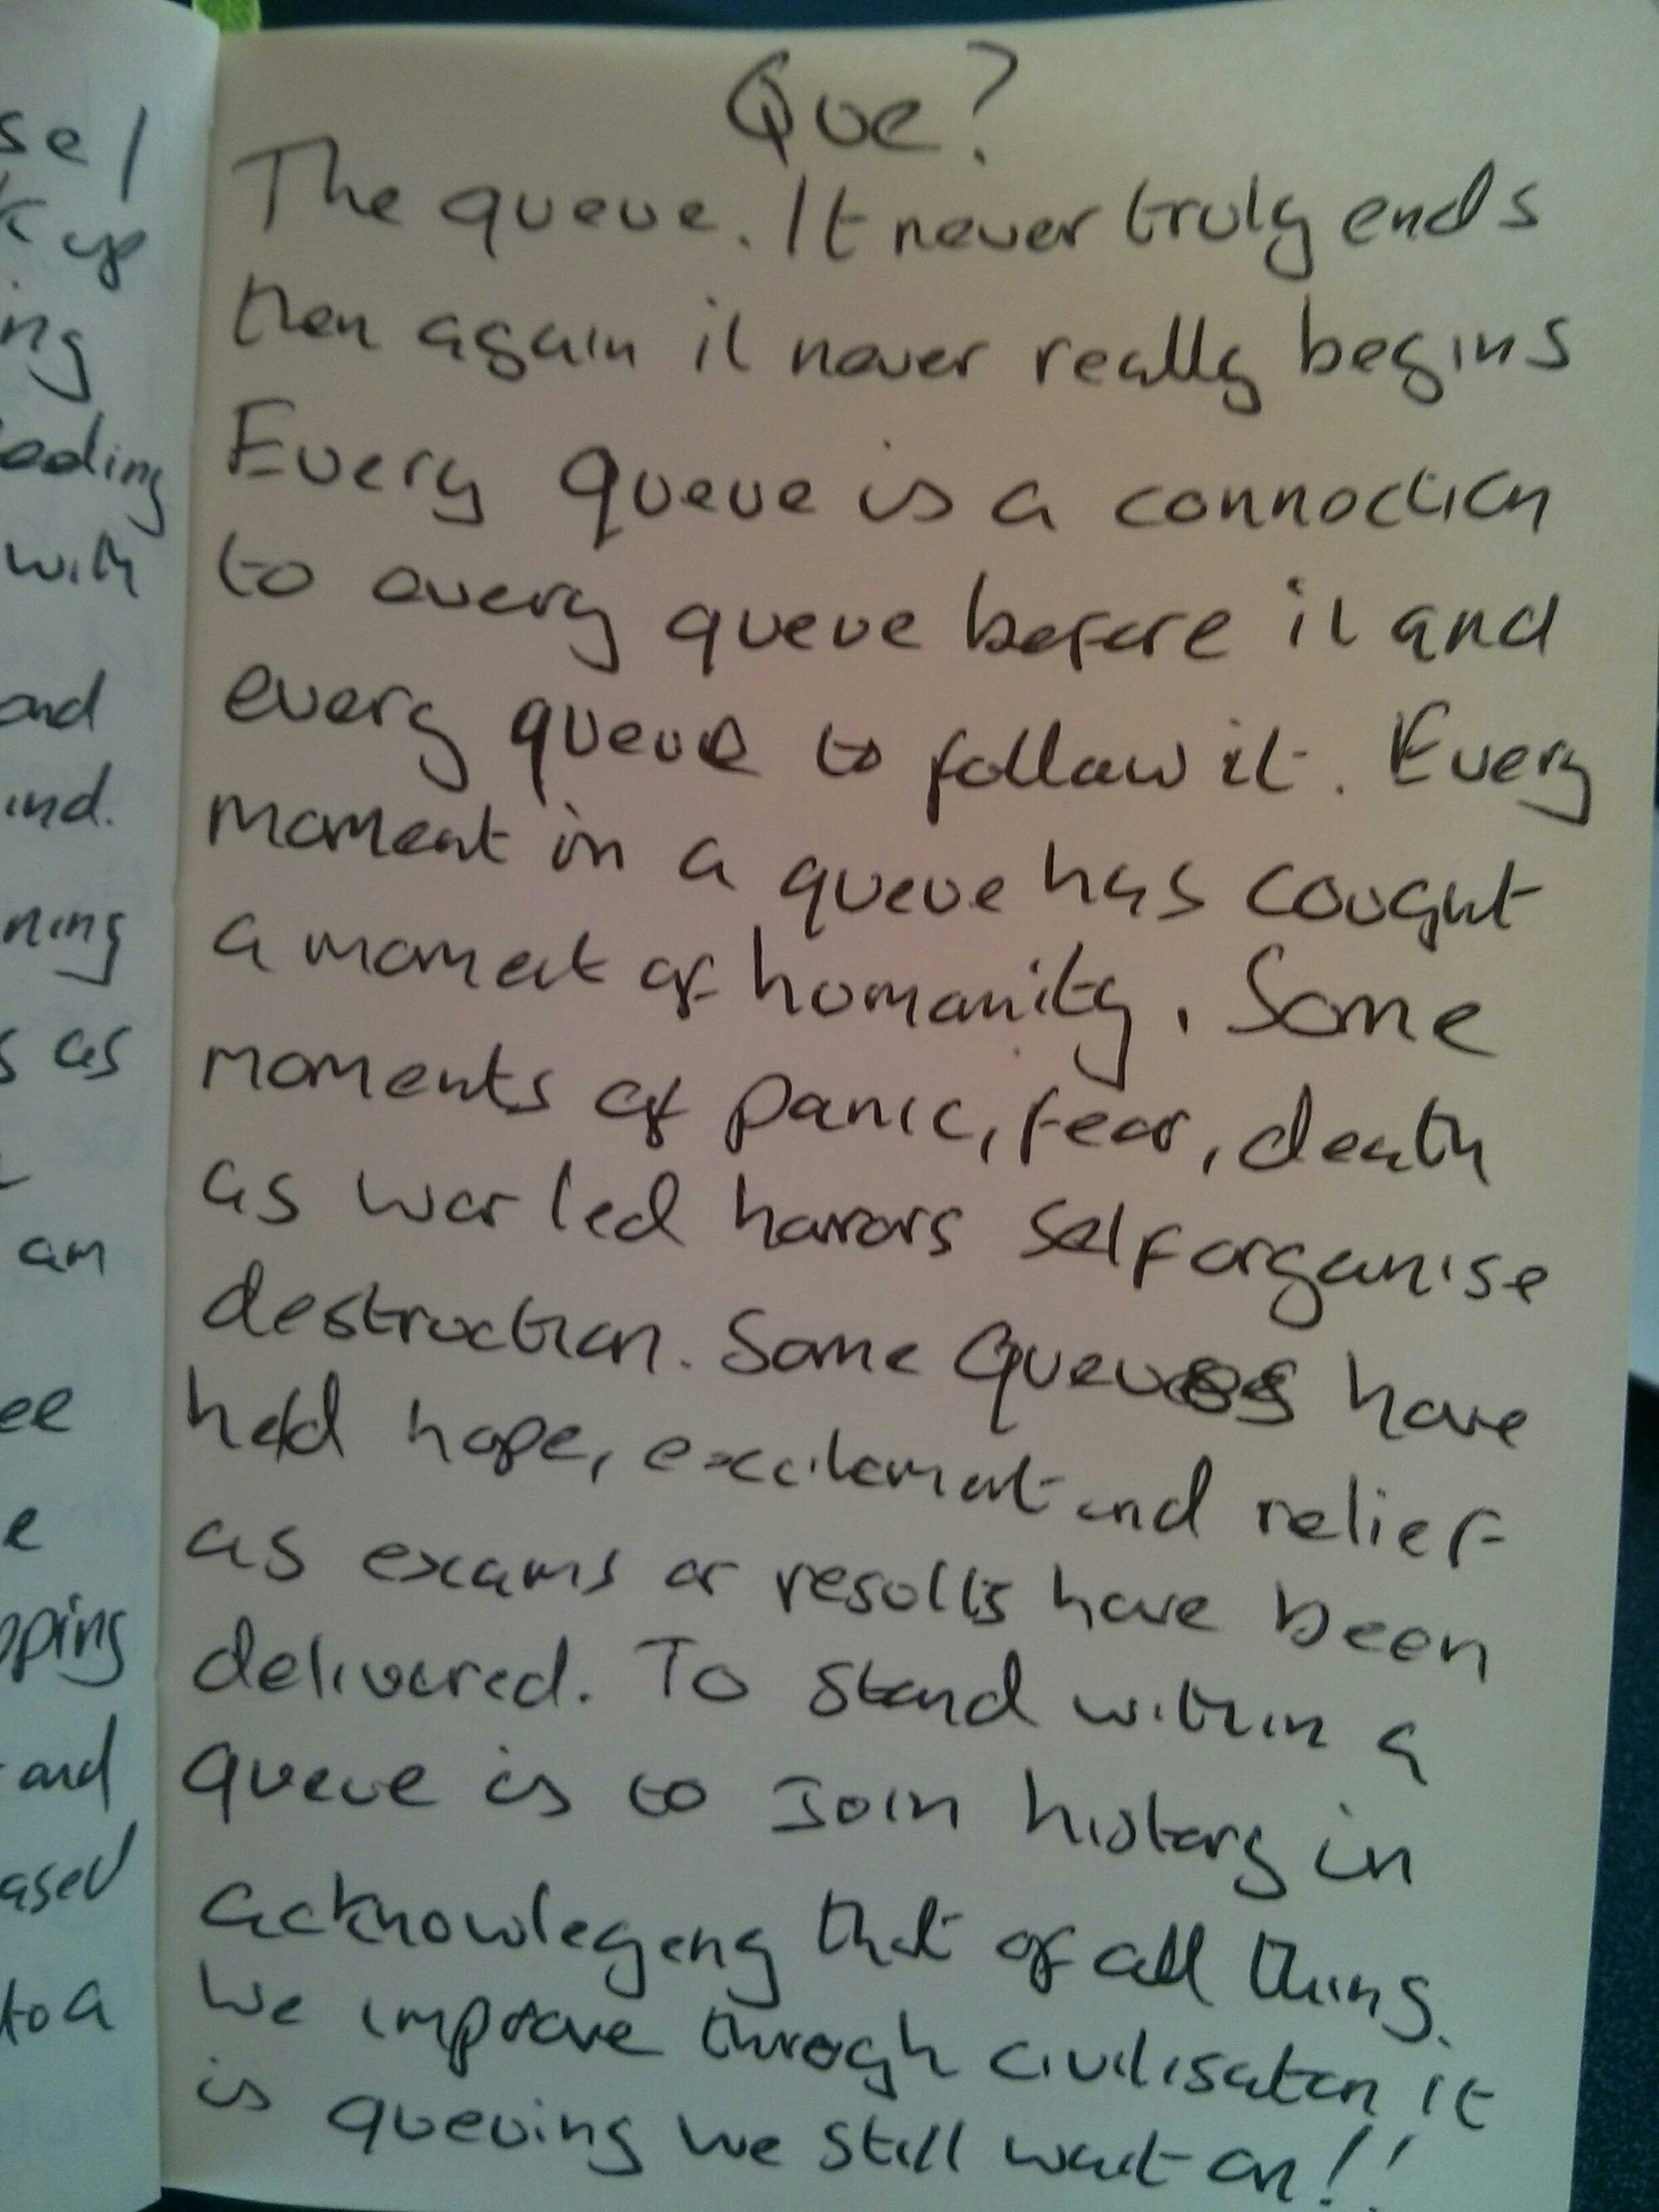 Que?
The queue. It never truly ends
then again it never really begins
Every queue is a connection
to every queue before it and
every queue to follow it. Every
moment in a queue has cought
a moment of homanity. Some
moments of panic, fear, death
as war led horrors self organise
destruction. Some queues have
held hope, excitement and relief
as exams or results have been
delivered. To stand within a
queue is to Join history in
acknowlegeng that of all things
we improve through civilisaton it
is queuing we still wait on!!
se I
up
ng
eading
with
and
ind.
ning
s as
am
ee
e
pping
and
ased
to a